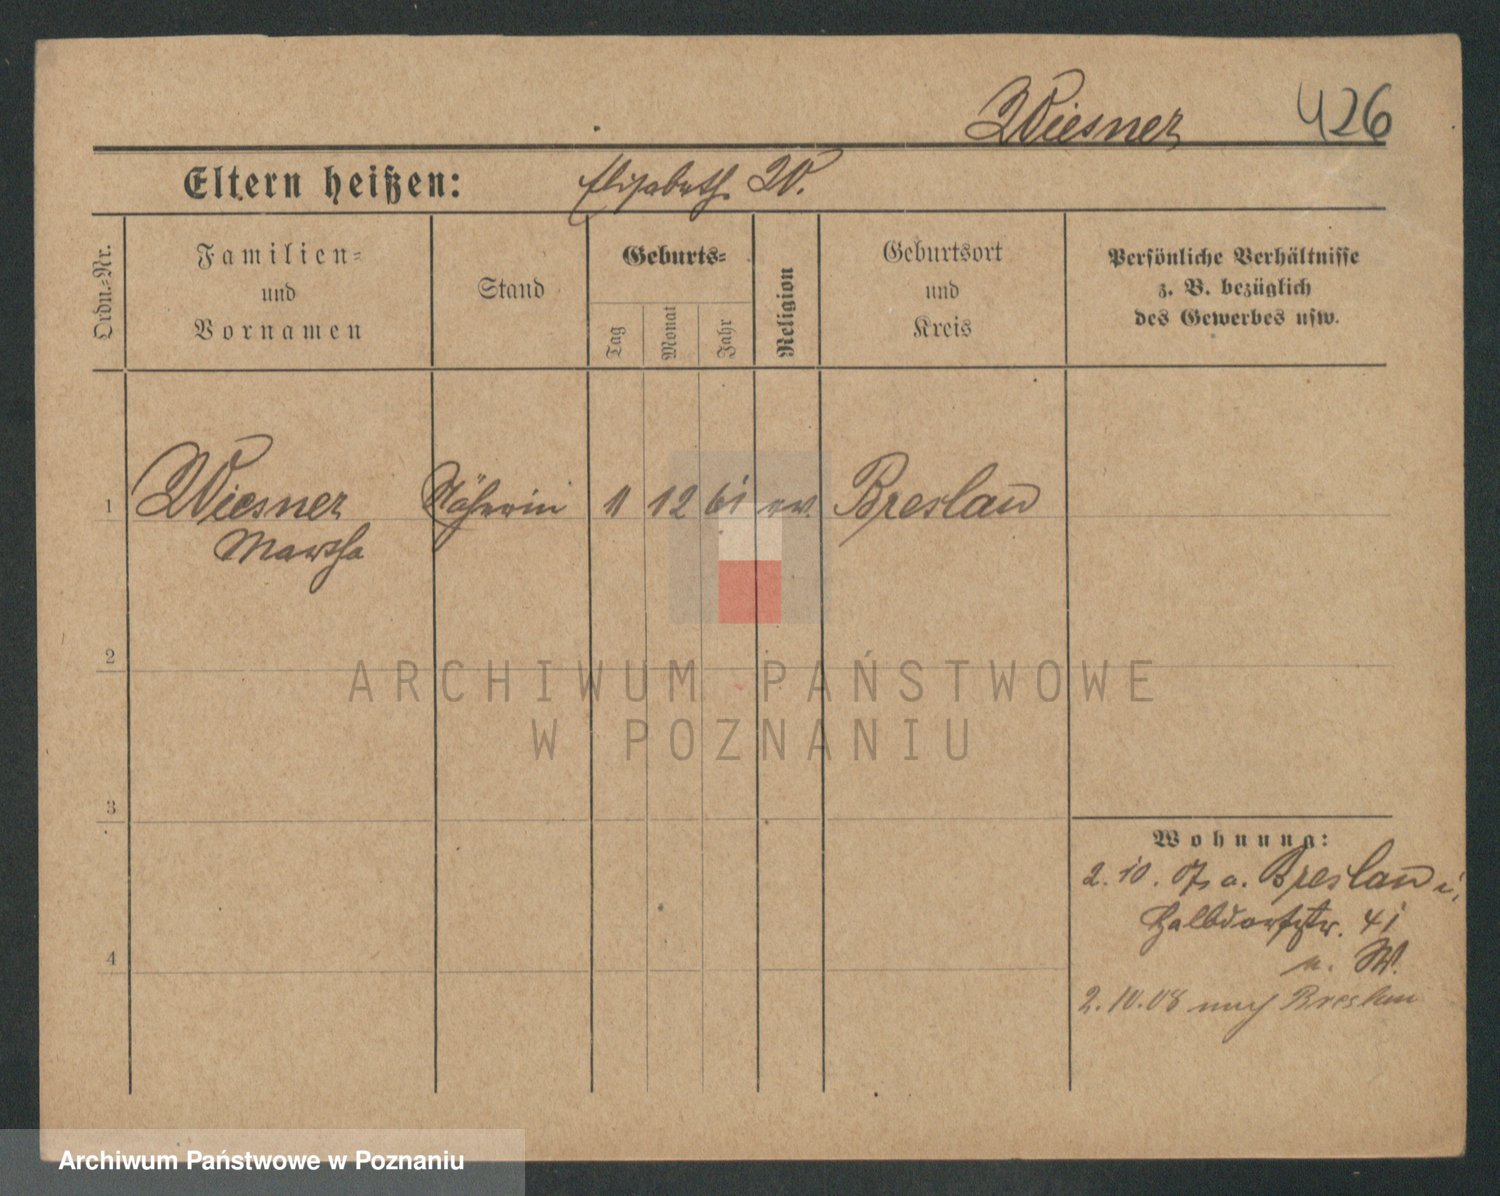 Wiesner 426
Eltern heißen: Elisabeth W.
Ordn.-Nr.
Familien- und Vornamen
Stand
Geburts-
Tag
Monat
Jahr
Religion
Geburtsort und Kreis
Persönliche Verhältnisse
z. B. bezüglich
des Gewerbes usw.
1 Wiesner Näherin 11 12 61 ev. Breslau
Martha
2
ARCHIWUM PAŃSTWOWE
W POZNANIU
3
Wohnung:
2. 10. 07 a. Breslau i.
41
n. W.
4
2. 10. 08 nach Breslau
Archiwum Państwowe w Poznaniu